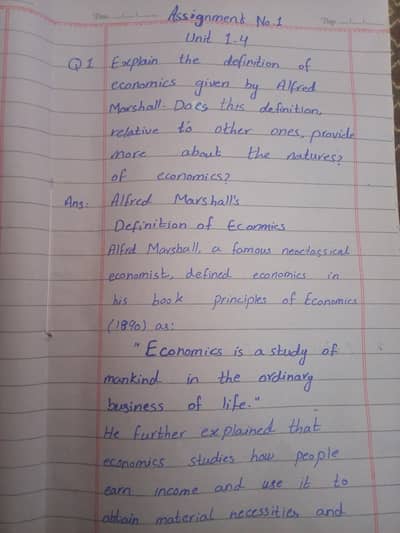 Assignment No.1
Unit 1-4
Q1 Explain the definition of
economics given by Alfred
Marshall. Does this definition,
relative to other ones, provide
more about the natures?
of economics?
Ans: Alfred Marshall's
Definition of Economics
Alfred Marshall, a famous neoclassical
economist, defined economics in
his book principles of Economics
(1890) as:
"Economics is a study of
mankind in the ordinary
business of life."
He further explained that
economics studies how people
earn income and use it to
obtain material necessities and